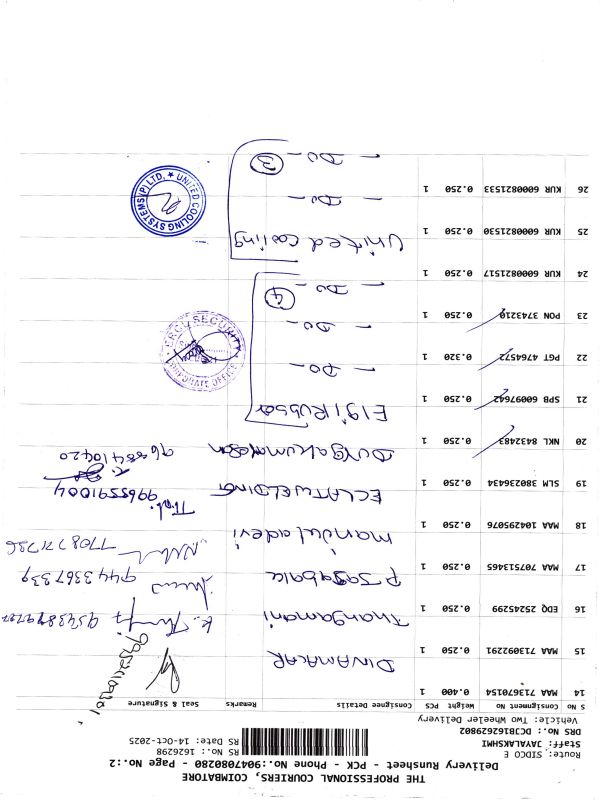 THE PROFESSIONAL COURIERS, COIMBATORE
Delivery Runsheet - PCK - Phone No.:9047080280 - Page No.:2
Route: SIDCO E
Staff: JAYALAKSHMI
DRS No.: DCJB1626298O2
Vehicle: Two Wheeler Delivery
RS No.: 1626298
RS Date: 14-Oct-2025
S No Consignment No Weight PCS Consignee Details Remarks Seal & Signature
14 MAA 713670154 0.400 1 DINAMALAR
15 MAA 713092291 0.250 1 Thangamani
16 EDQ 25245299 0.250 1
17 MAA 707513465 0.250 1 manjuladevi
18 MAA 104295076 0.250 1 ECLATWELDING 9965591004
19 SLM 380236434 0.250 1
20 NKL 8432483 0.250 1 Elgi Rubber
21 SPB 60097642 0.250 1 - DO -
22 PGT 4764572 0.320 1 - DO -
23 PON 3743210 0.250 1 - DO - 4
24 KUR 6000821517 0.250 1 United cooling
25 KUR 600081530 0.250 1 - DO -
26 KUR 600081533 0.250 1 - DO - 3
9443367339
7708771726
SECURITY
CORPORATE OFFICE
UNITED COOLING SYSTEMS (P) LTD.